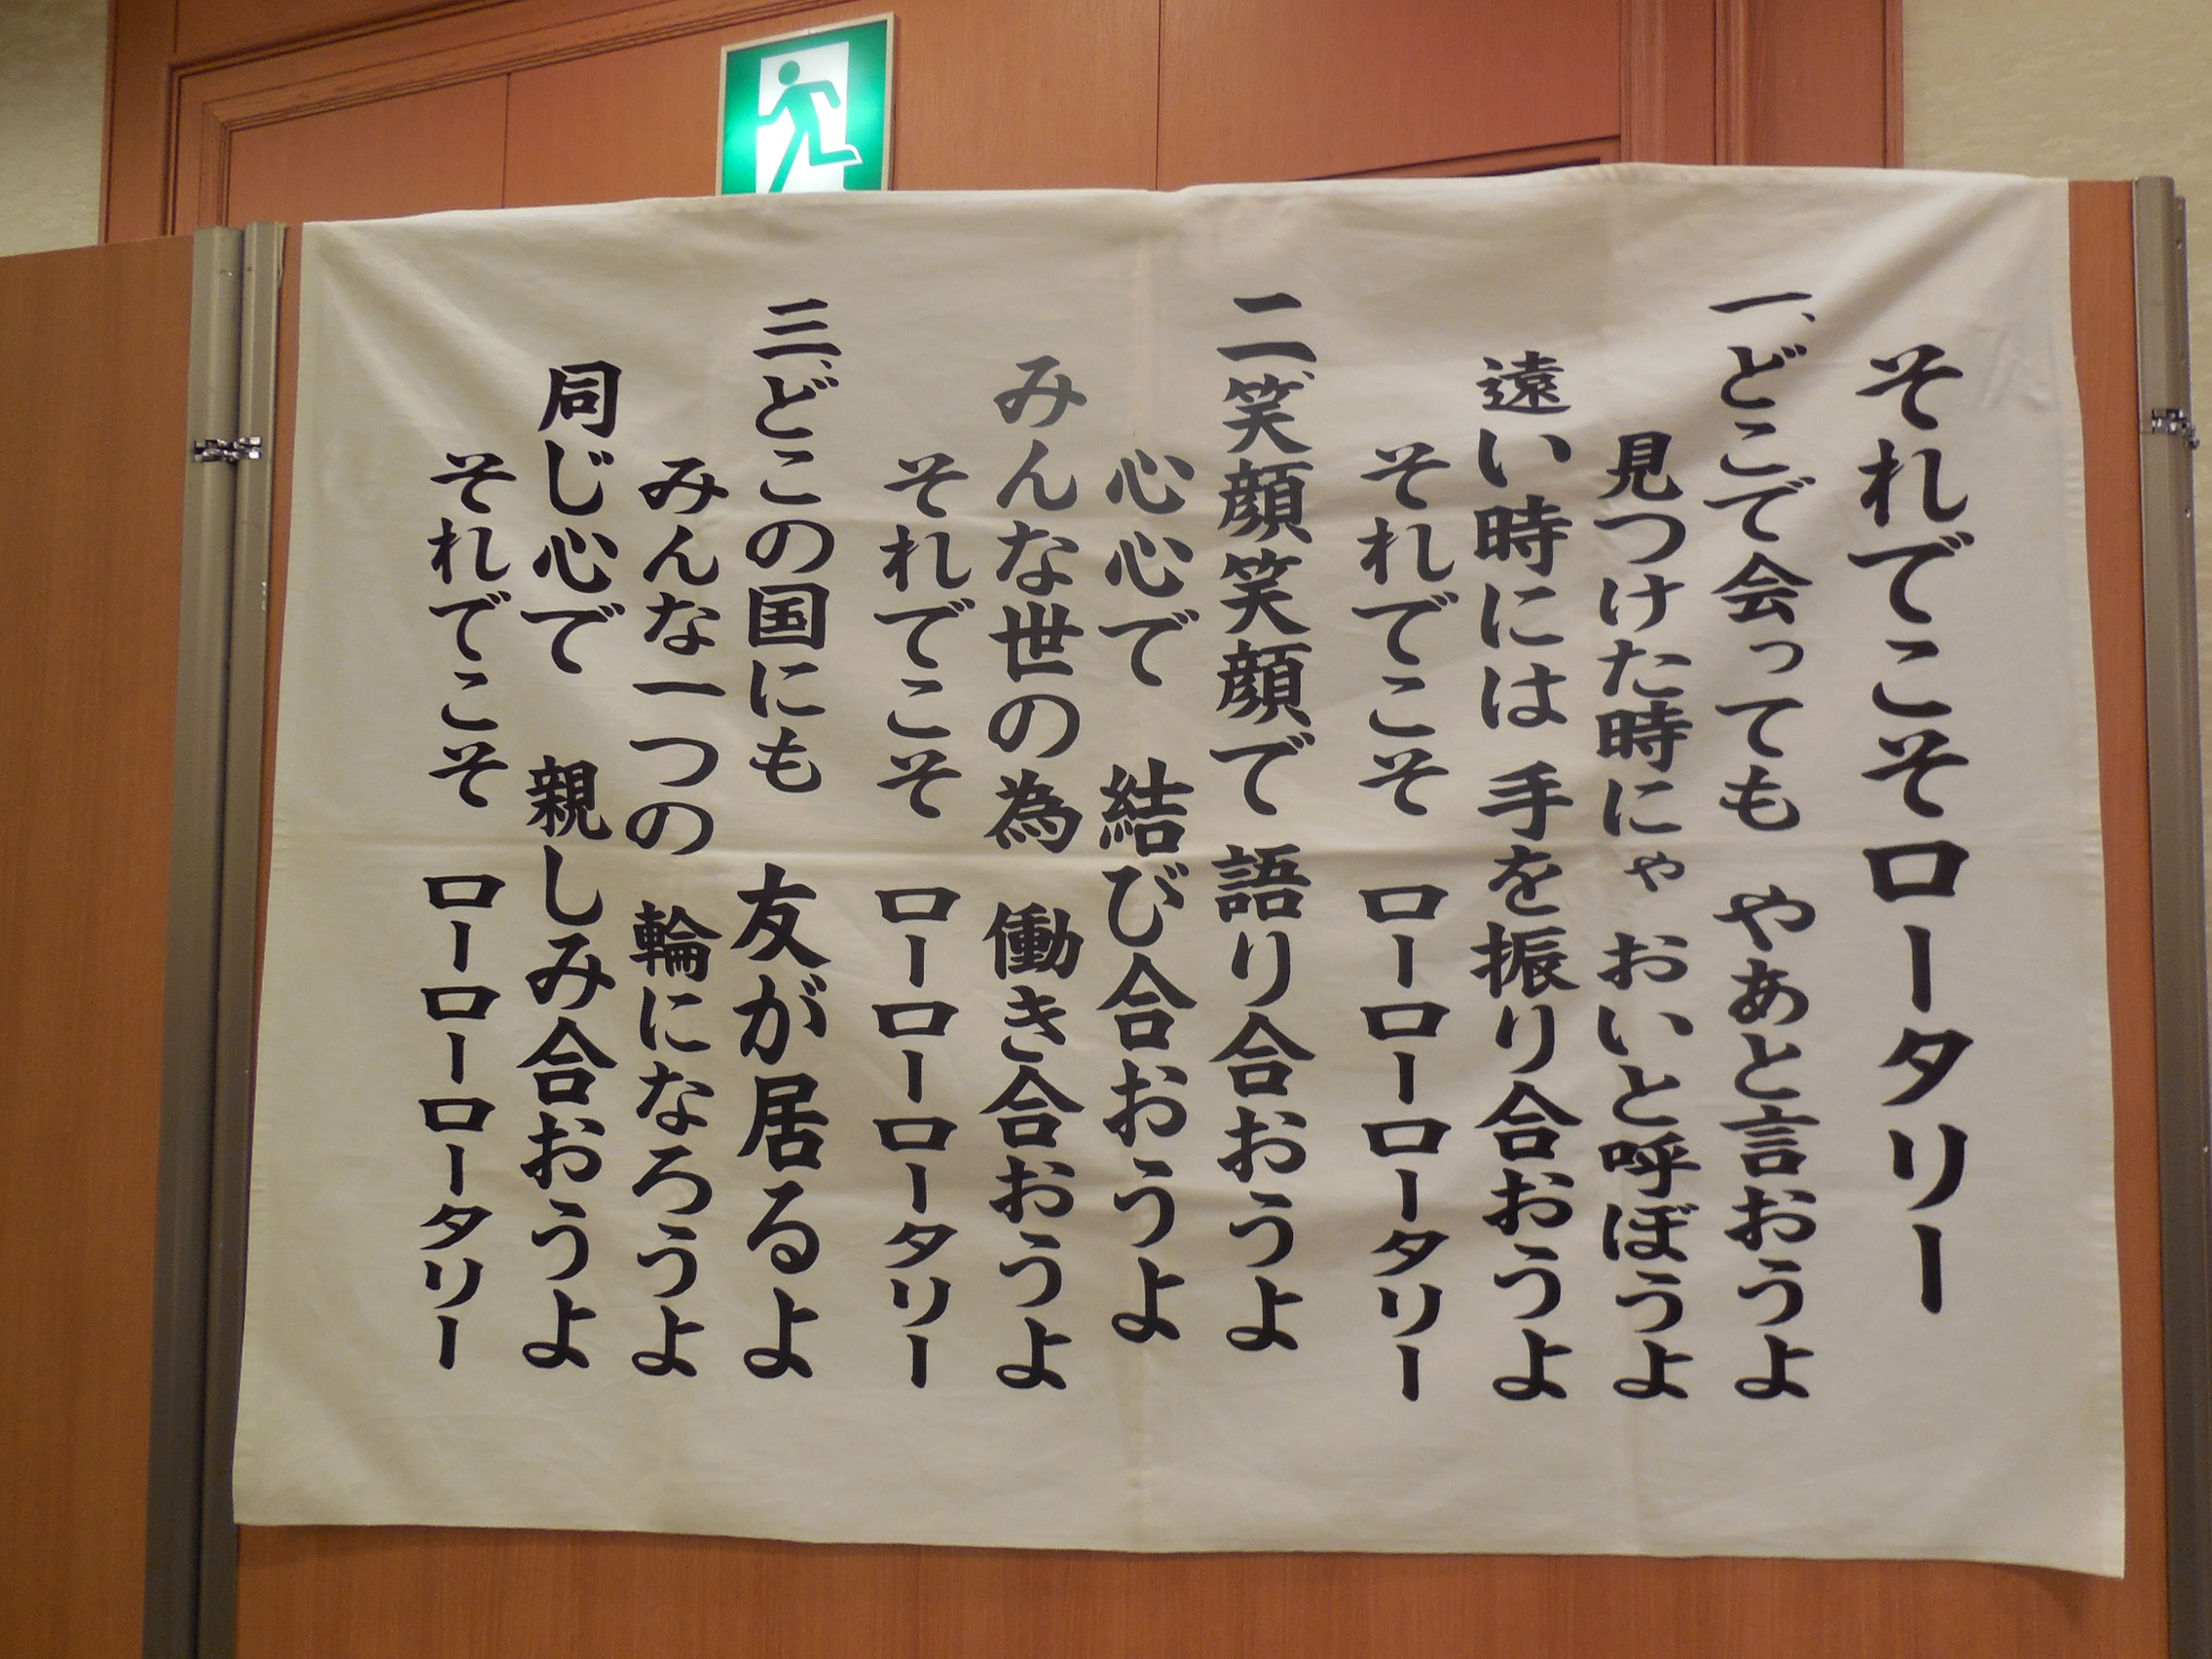 それでこそロータリー
一、どこで会っても　やあと言おうよ
見つけた時にゃ　おいと呼ぼうよ
遠い時には　手を振り合おうよ
それでこそ　ローローロータリー
二、笑顔笑顔で　語り合おうよ
心心で　結び合おうよ
みんな世の為　働き合おうよ
それでこそ　ローローロータリー
三、どこの国にも　友が居るよ
みんな一つの　輪になろうよ
同じ心で　親しみ合おうよ
それでこそ　ローローロータリー